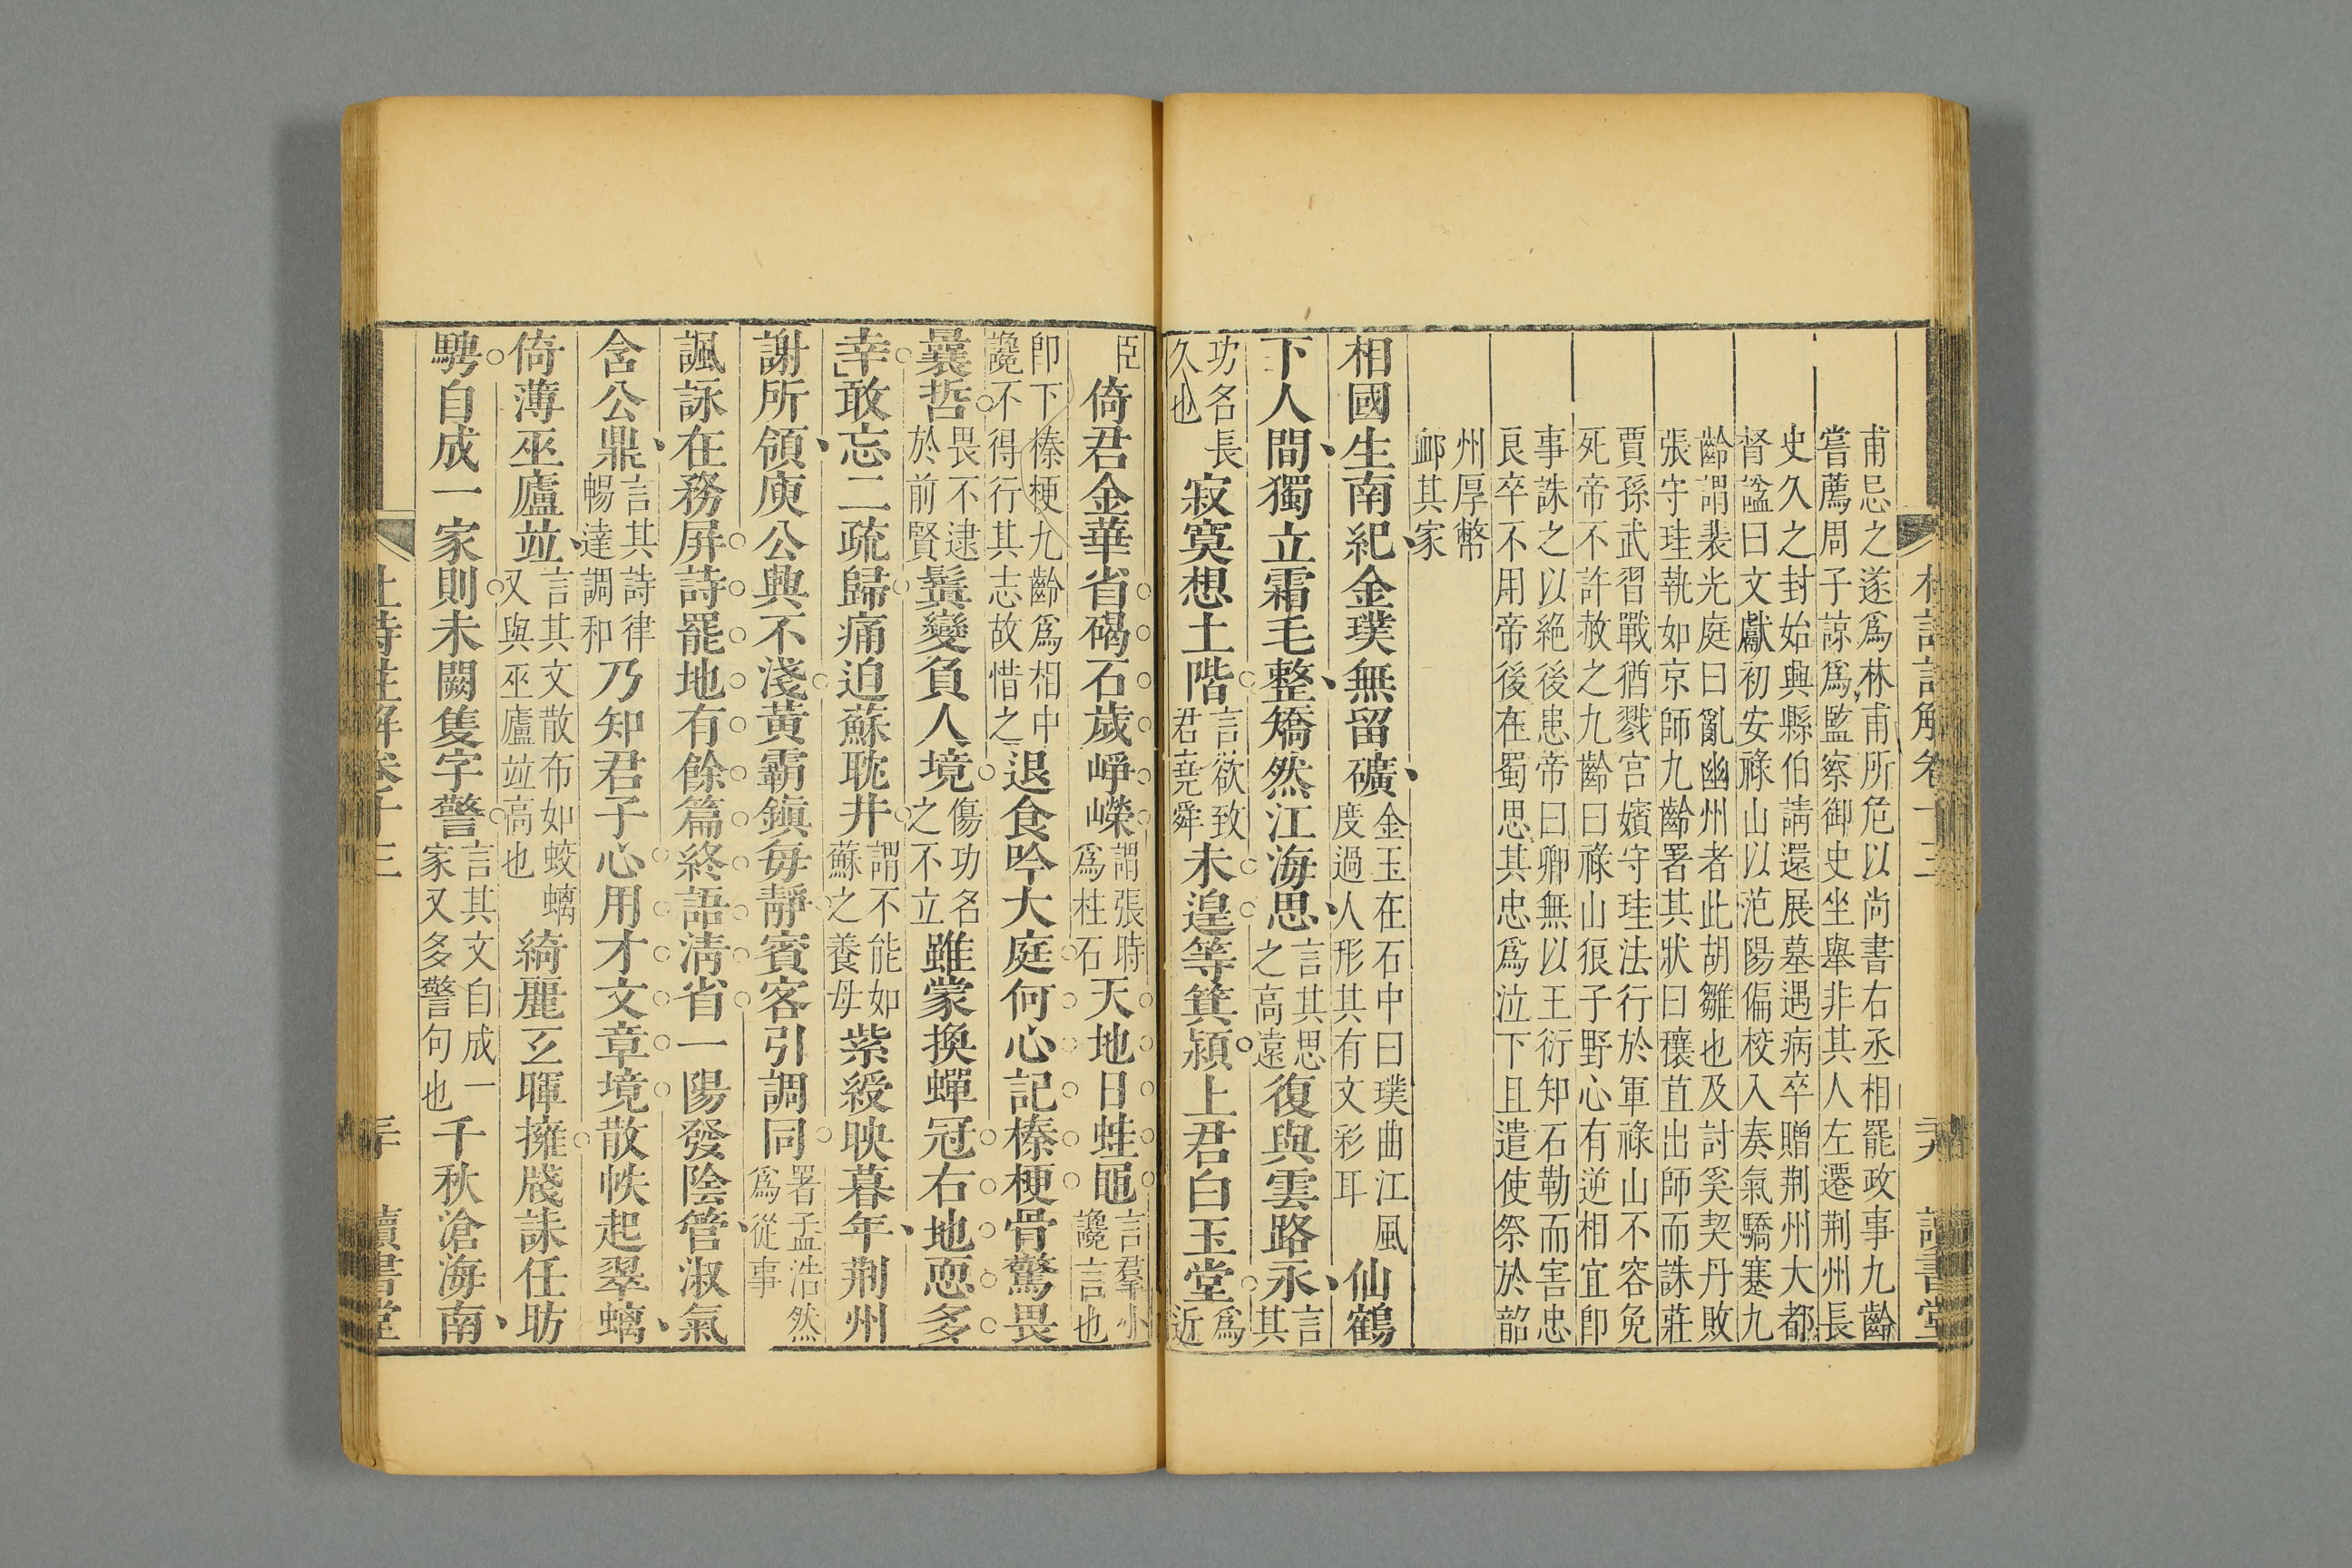 甫忌之遂爲林甫所危以尚書右丞相罷政事九齡
嘗薦周子諒爲監察御史坐舉非其人左遷荆州長
史久之封始興縣伯請還展墓遇病卒贈荆州大都
督諡曰文獻初安祿山以范陽偏校入奏氣驕蹇九
齡謂裴光庭曰亂幽州者此胡雛也及討奚契丹敗
張守珪執如京師九齡署其狀曰穰苴出師而誅莊
賈孫武習戰猶戮宮嬪守珪法行於軍祿山不容免
死帝不許赦之九齡曰祿山狼子野心有逆相宜卽
事誅之以絶後患帝曰卿無以王衍知石勒而害忠
良卒不用帝後在蜀思其忠爲泣下且遣使祭於韶
州厚幣
卹其家
相國生南紀金璞無留礦金玉在石中曰璞曲江風度過人形其有文彩耳仙鶴
下人間獨立霜毛整矯然江海思言其思之高遠復與雲路永言其
功名長久也寂寞想土階言欲致君堯舜未遑等箕潁上君白玉堂爲近
臣倚君金華省碣石歲崢嶸謂張時爲柱石天地日蛙黽言羣小讒言也
卽下榛梗九齡爲相中讒不得行其志故惜之退食吟大庭何心記榛梗骨驚畏
曩哲畏不逮於前賢鬢變負人境傷功名之不立雖蒙換蟬冠右地恧多
幸敢忘二疏歸痛迫蘇耽井謂不能如蘇之養母紫綬映暮年荆州
謝所領庾公興不淺黃霸鎭每靜賓客引調同署孟浩然爲從事
諷詠在務屏詩罷地有餘篇終語淸省一陽發陰管淑氣
含公鼎言其詩律暢達調和乃知君子心用才文章境散帙起翠螭
倚薄巫廬竝言其文散布如蛟螭又與巫廬竝高也綺麗玄暉擁牋誄任昉
騁自成一家則未闕隻字警言其文自成一家又多警句也千秋滄海南